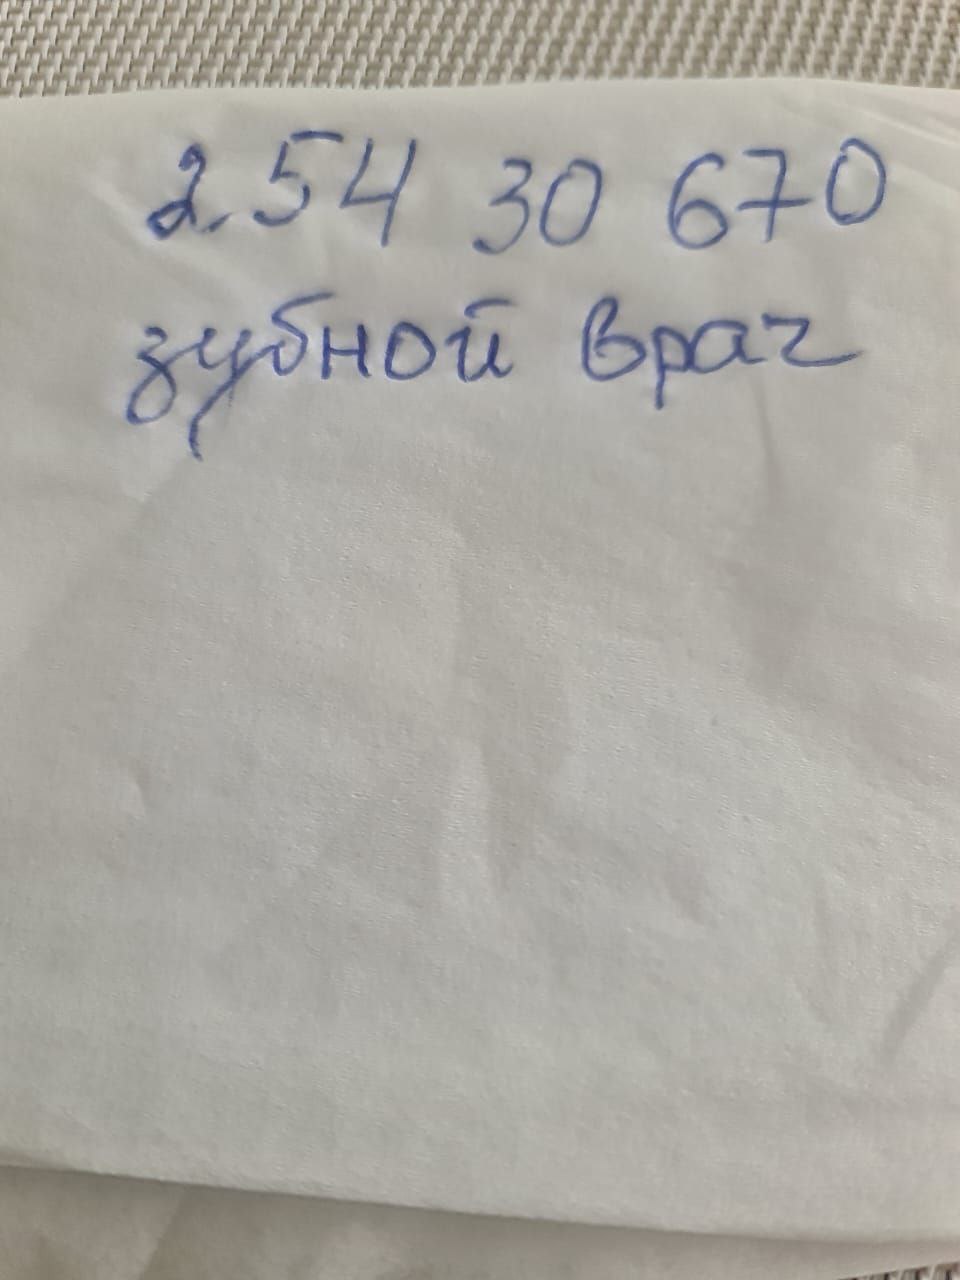 254 30 670
зубной врач